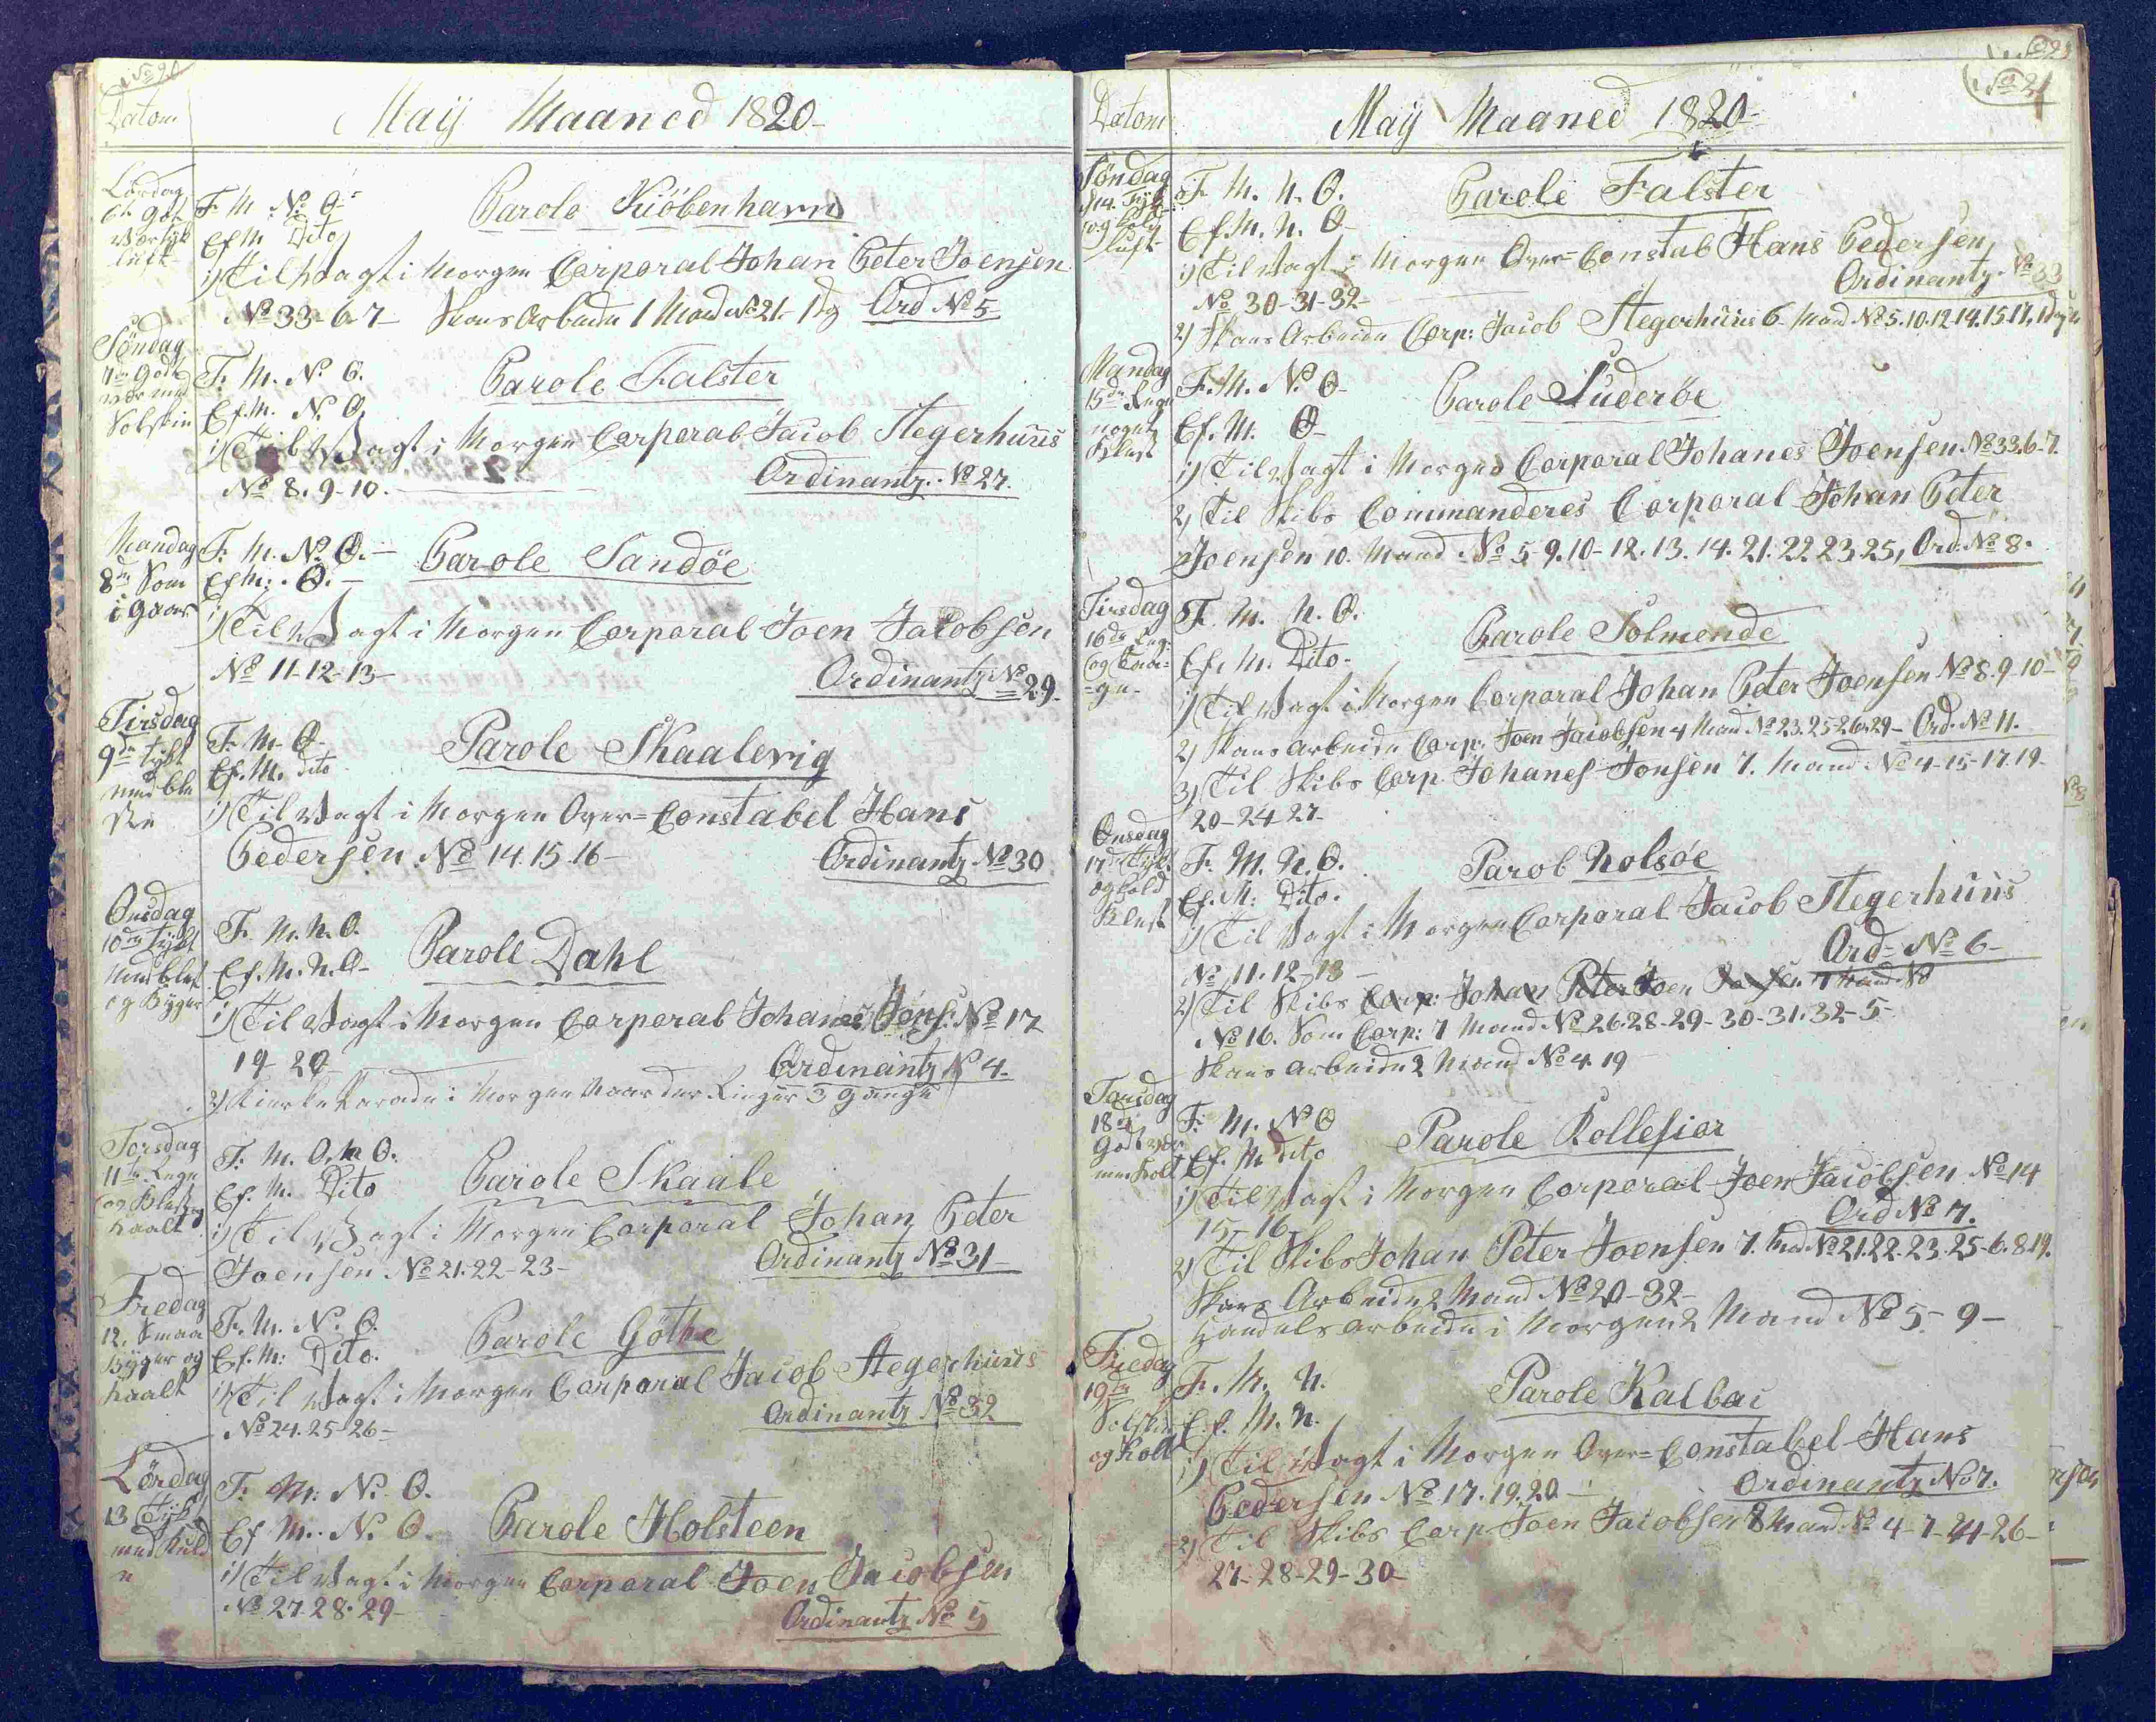 No 20
Datom
Maij Maaned 1820
Lördag
6te godt
Vær tyk
luft
F. M. No O
Parole Kiöbenhavn
Ef M Dito
1) Til Vagt i Morgen Corporal Johan Peter Joensen
No 33-6-7 Skans Arbeide 1 Mand No 21- 1 dg Ord No 5
Söndag
7de godt
vær med
Solskin
F. M. No O.
Parole Falster
Ef. M. N. O.
1) Til Vagt i Morgen Corporal Jacob Stegerhuus
No 8. 9-10.
Ordinantz. No 27.
Mandag
8de Som
i gaar
F. M. No O.
Parole Sandöe
Ef M: O.
1) Til Vagt i Morgen Corporal Joen Jacobsen
No 11-12-13-
Ordinantz No 29.
Tirsdag
9de tykt
med ble
st
F. M. O
Parole Skaalevig
Ef. M. dito
1) Til Vagt i Morgen Over=Constabel Hans
Pedersen No 14.15.16-
Ordinantz No 30
Onsdag
10de Tykt
med blest
og Byger
F. M. N. O.
Parole Dahl
Ef. M. N. O-
1) Til Vagt i Morgen Corporal Johanes Jons. No 17
19-20
Ordinantz N 4-
2) Kierke Parade i Morgen Naar der Ringer 3 gange
Torsdag
11te Regn
og Blest og
kaalt
F. M. O. N O.
Parole Skaale
Ef. M. Dito
1) Til Vagt i Morgen Corporal Johan Peter
Joensen No 21-22-23-
Ordinantz No 31-
Fredag
12. Smaa
Byger og
kaalt
F. M. No. O.
Parole Göthe
Ef. M: Dito.
1) Til Vagt i Morgen Corporal Jacob Stegerhuus
No 24.25-26-
Ordinantz No 32
Lördag
13 Tykt
med Kuld
e
F. M: No. O.
Parole Holsteen
Ef M. No. O.
1) Til Vagt i Morgen Corporal Joen Jacobsen
No 27.28.29-
Ordinantz No 5
No 21
Datom
Maij Maaned 1820
Söndag
d 14. Tyk
og Kold
luft
F. M. N. O.
Parole Falster
Ef. M. N. O
1) Til Vagt i Morgen Over=Constab Hans Pedersen
No 30-31-32-
Ordinantz No 33
2) Skans Arbeide Corp: Jacob Stegerhuus 6 Mand No 5.10.12.14.15.17.
Mandag
15de Regn
noget
Blest
F. M. No. O-
Parole Suderöe
Ef. M. O-
1) Til Vagt i Morgen Corporal Johanes Joensen No 33.6.7.
2) Til Skibs Commanderes Corporal Johan Peter
Joensen 10. Mand No 5-9.10-12.13.14.21.22.23.25, Ord. No 8.
Tirsdag
16de Regn
og
F. M. N. O.
Parole Solmende
Ef. M. Dito-
1) Til Vagt i Morgen Corporal Johan Peter Joensen No 8.9.10-
2) Skans arbeide Corp: Joen Jacobsen 4 Mand No 23.25.26.29- Ord. No 11.
3) Til Skibs Corp Johanes Jonsen 7. Mand No 4-15-17.19-
20-24-27-
Onsdag
17de Tykt
og Kold
Blest
F. M. N. O.
Parol Nolsöe
Ef. M: Dito.
1) Til Vagt i Morgen Corporal Jacob Stegerhuus
No 11.12-13-
Ord- No 6-
2) Til Skibs Corp: Johan Peter Joen
No 16. Som Corp: 7 Mand No 26-28-29-30-31.32-5-
Skans arbeide 2 Mand No 4.19
Torsdag
18de
Godt vær
men Kolt
F. M. No O
Parole Kollefior
Ef. M dito
1) Til Vagt i Morgen Corporal Joen Jacobsen No 14
15-16-
Ord No 7.
2) Til Skibs Johan Peter Joensen 7. Md No 21.22.23.25-6.8.19.
Skans Arbeide 2 Mand No 20-32-
Handels arbeide i Morgen 2 Mand No 5-9-
Fredag
19de
Solskin
og Kolt
F. M. N.
Parole Kalbac
Ef. M. N.
1) Til Vagt i Morgen Over=Constabel Hans
Pedersen No 17.19.20-
Ordinantz No 7.
2) Til Skibs Corp Joen Jacobsen 8 Mand No 4-7-24-26-
27-28-29-30-